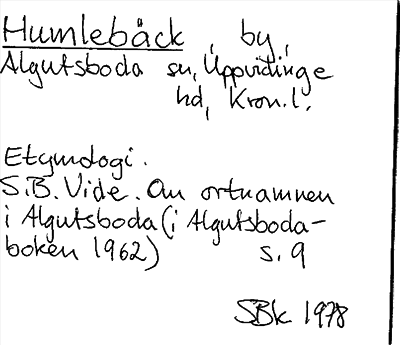 Humlebäck, by,
Algutsboda sn, Uppvidinge
hd, Kron.l.
Etymologi.
S.B. Vide. Om ortnamnen
i Algutsboda (i Algutsboda-
boken 1962) s. 9
SBk 1978